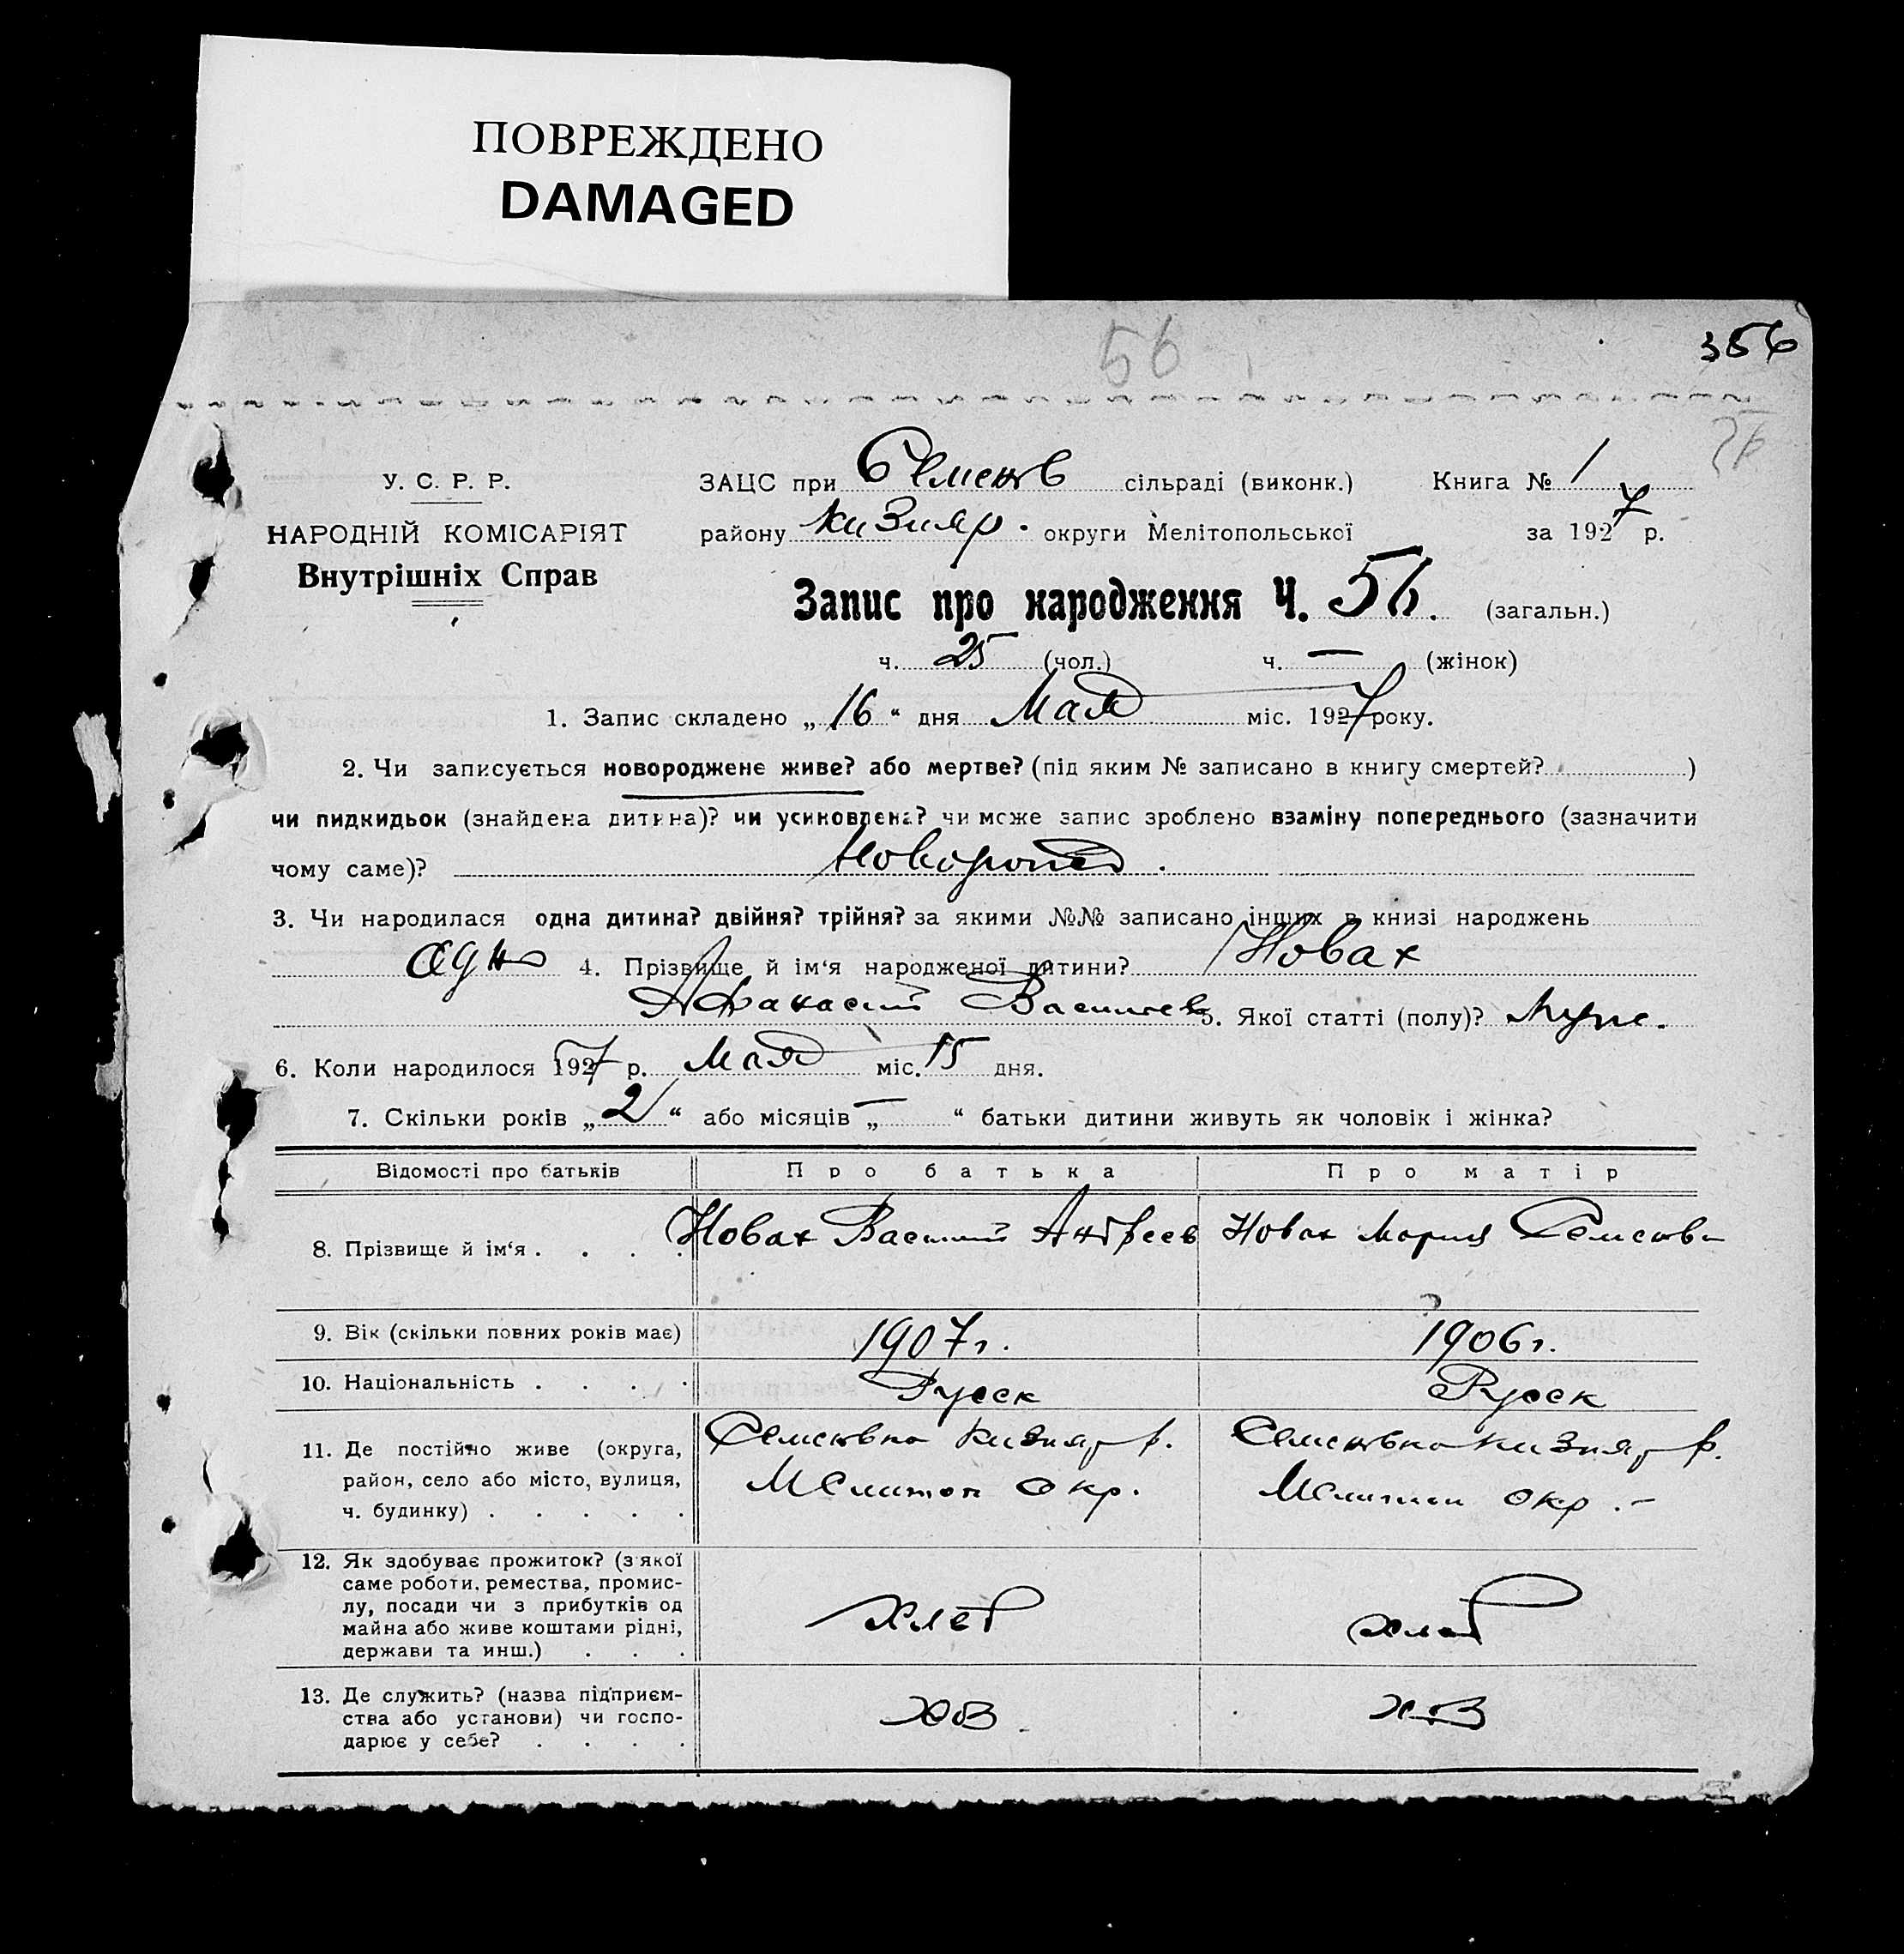 ПОВРЕЖДЕНО
DAMAGED
56
356
У. С. Р. Р.
НАРОДНІЙ КОМІСАРІЯТ
Внутрішніх Справ
ЗАЦС при Семенов сільраді (виконк.) Книга № 1
району Кизияр. округи Мелітопольської за 1927 р.
Запис про народження Ч. 56. (загальн.)
ч. 25 (чол.) ч. — (жінок)
1. Запис складено „ 16 “ дня Мая міс. 1927 року.
2. Чи записується новороджене живе? або мертве? (під яким № записано в книгу смертей? )
чи пидкидьок (знайдена дитина)? чи усиновлена? чи може запис зроблено взаміну попереднього (зазначити
чому саме)? Новорожд.
3. Чи народилася одна дитина? двійня? трійня? за якими №№ записано інших в книзі народжень
одно 4. Прізвище й ім‘я народженої дитини? Новах
Афанасий Васильев 5. Якої статті (полу)? Муж.
6. Коли народилося 1927 р. Мая міс. 15 дня.
7. Скільки років „ 2 “ або місяців „ — “ батьки дитини живуть як чоловік і жінка?
Відомості про батьків Про батька Про матір
8. Прізвище й ім‘я . . . . Новах Василий Андреев Новах Мария Семеновн
9. Вік (скільки повних років має) 1907 г. 1906 г.
10. Національність . . . . Русск Русск
11. Де постійно живе (округа,
район, село або місто, вулиця,
ч. будинку) . . . . .
Семеновка Кизияр р.
Мелитоп окр.
Семеновка Кизияр р.
Мелитоп окр. –
12. Як здобуває прожиток? (з якої
саме роботи, ремества, промис-
лу, посади чи з прибутків од
майна або живе коштами рідні,
держави та инш.) . . .
хлеб хлеб
13. Де служить? (назва підприєм-
ства або установи) чи госпо-
дарює у себе? . . . .
хоз хоз